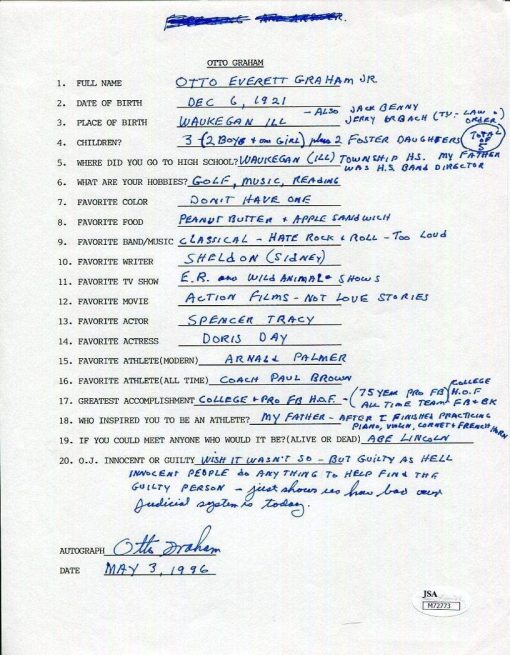 OTTO GRAHAM
1. FULL NAME OTTO EVERETT GRAHAM JR.
2. DATE OF BIRTH DEC 6, 1921
3. PLACE OF BIRTH WAUKEGAN ILL - ALSO JACK BENNY JERRY ORBACH (TV- LAW & ORDER)
4. CHILDREN? 3 (2 BOYS + one GIRL) plus 2 FOSTER DAUGHTERS TOTAL OF 5
5. WHERE DID YOU GO TO HIGH SCHOOL? WAUKEGAN (ILL) TOWNSHIP H.S. MY FATHER
WAS H.S. BAND DIRECTOR
6. WHAT ARE YOUR HOBBIES? GOLF, MUSIC, READING
7. FAVORITE COLOR DON'T HAVE ONE
8. FAVORITE FOOD PEANUT BUTTER + APPLE SANDWICH
9. FAVORITE BAND/MUSIC CLASSICAL - HATE ROCK & ROLL - TOO LOUD
10. FAVORITE WRITER SHELDON (SIDNEY)
11. FAVORITE TV SHOW E.R. and WILD ANIMAL SHOWS
12. FAVORITE MOVIE ACTION FILMS - NOT LOVE STORIES
13. FAVORITE ACTOR SPENCER TRACY
14. FAVORITE ACTRESS DORIS DAY
15. FAVORITE ATHLETE(MODERN) ARNALD PALMER
16. FAVORITE ATHLETE(ALL TIME) COACH PAUL BROWN
17. GREATEST ACCOMPLISHMENT COLLEGE + PRO FB H.O.F. - (75 YEAR PRO FB ALL TIME TEAM COLLEGE H.O.F FB + BK
18. WHO INSPIRED YOU TO BE AN ATHLETE? MY FATHER - AFTER I FINISHED PRACTICING
PIANO, VIOLIN, CORNET & FRENCH HORN
19. IF YOU COULD MEET ANYONE WHO WOULD IT BE?(ALIVE OR DEAD) ABE LINCOLN
20. O.J. INNOCENT OR GUILTY WISH IT WASN'T SO - BUT GUILTY AS HELL
INNOCENT PEOPLE DO ANYTHING TO HELP FIND THE
GUILTY PERSON - just shows us how bad our
Judicial system is today.
AUTOGRAPH Otto Graham
DATE MAY 3, 1996
JSA
M72773